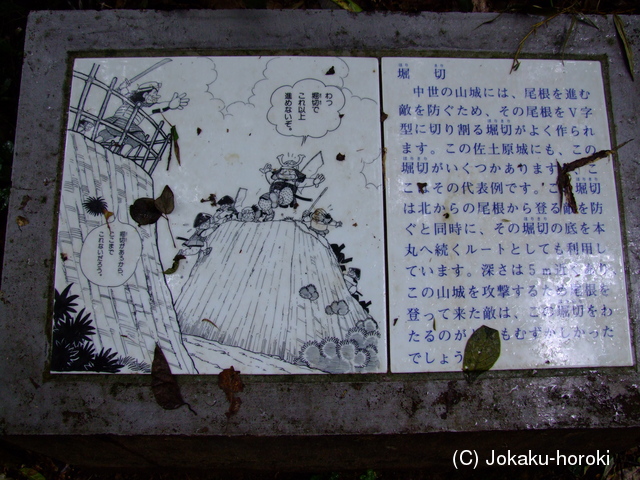 わっ
堀切で
これ以上
進めないぞ。
堀切があるから、
ここまで
これないだろう。
堀切
中世の山城には、尾根を進む
敵を防ぐため、その尾根をV字
型に切り割る堀切がよく作られ
ます。この佐土原城にも、この
堀切がいくつかあります
こその代表例です。こ堀切
は北からの尾根から登る敵を防
ぐと同時に、その堀切の底を本
丸へ続くルートとしても利用し
ています。深さは5m近く
この山城を攻撃するため尾根を
登って来た敵は、この堀切をわ
たるのがとてもむずかしかった
でしょう
(C) Jokaku-horoki